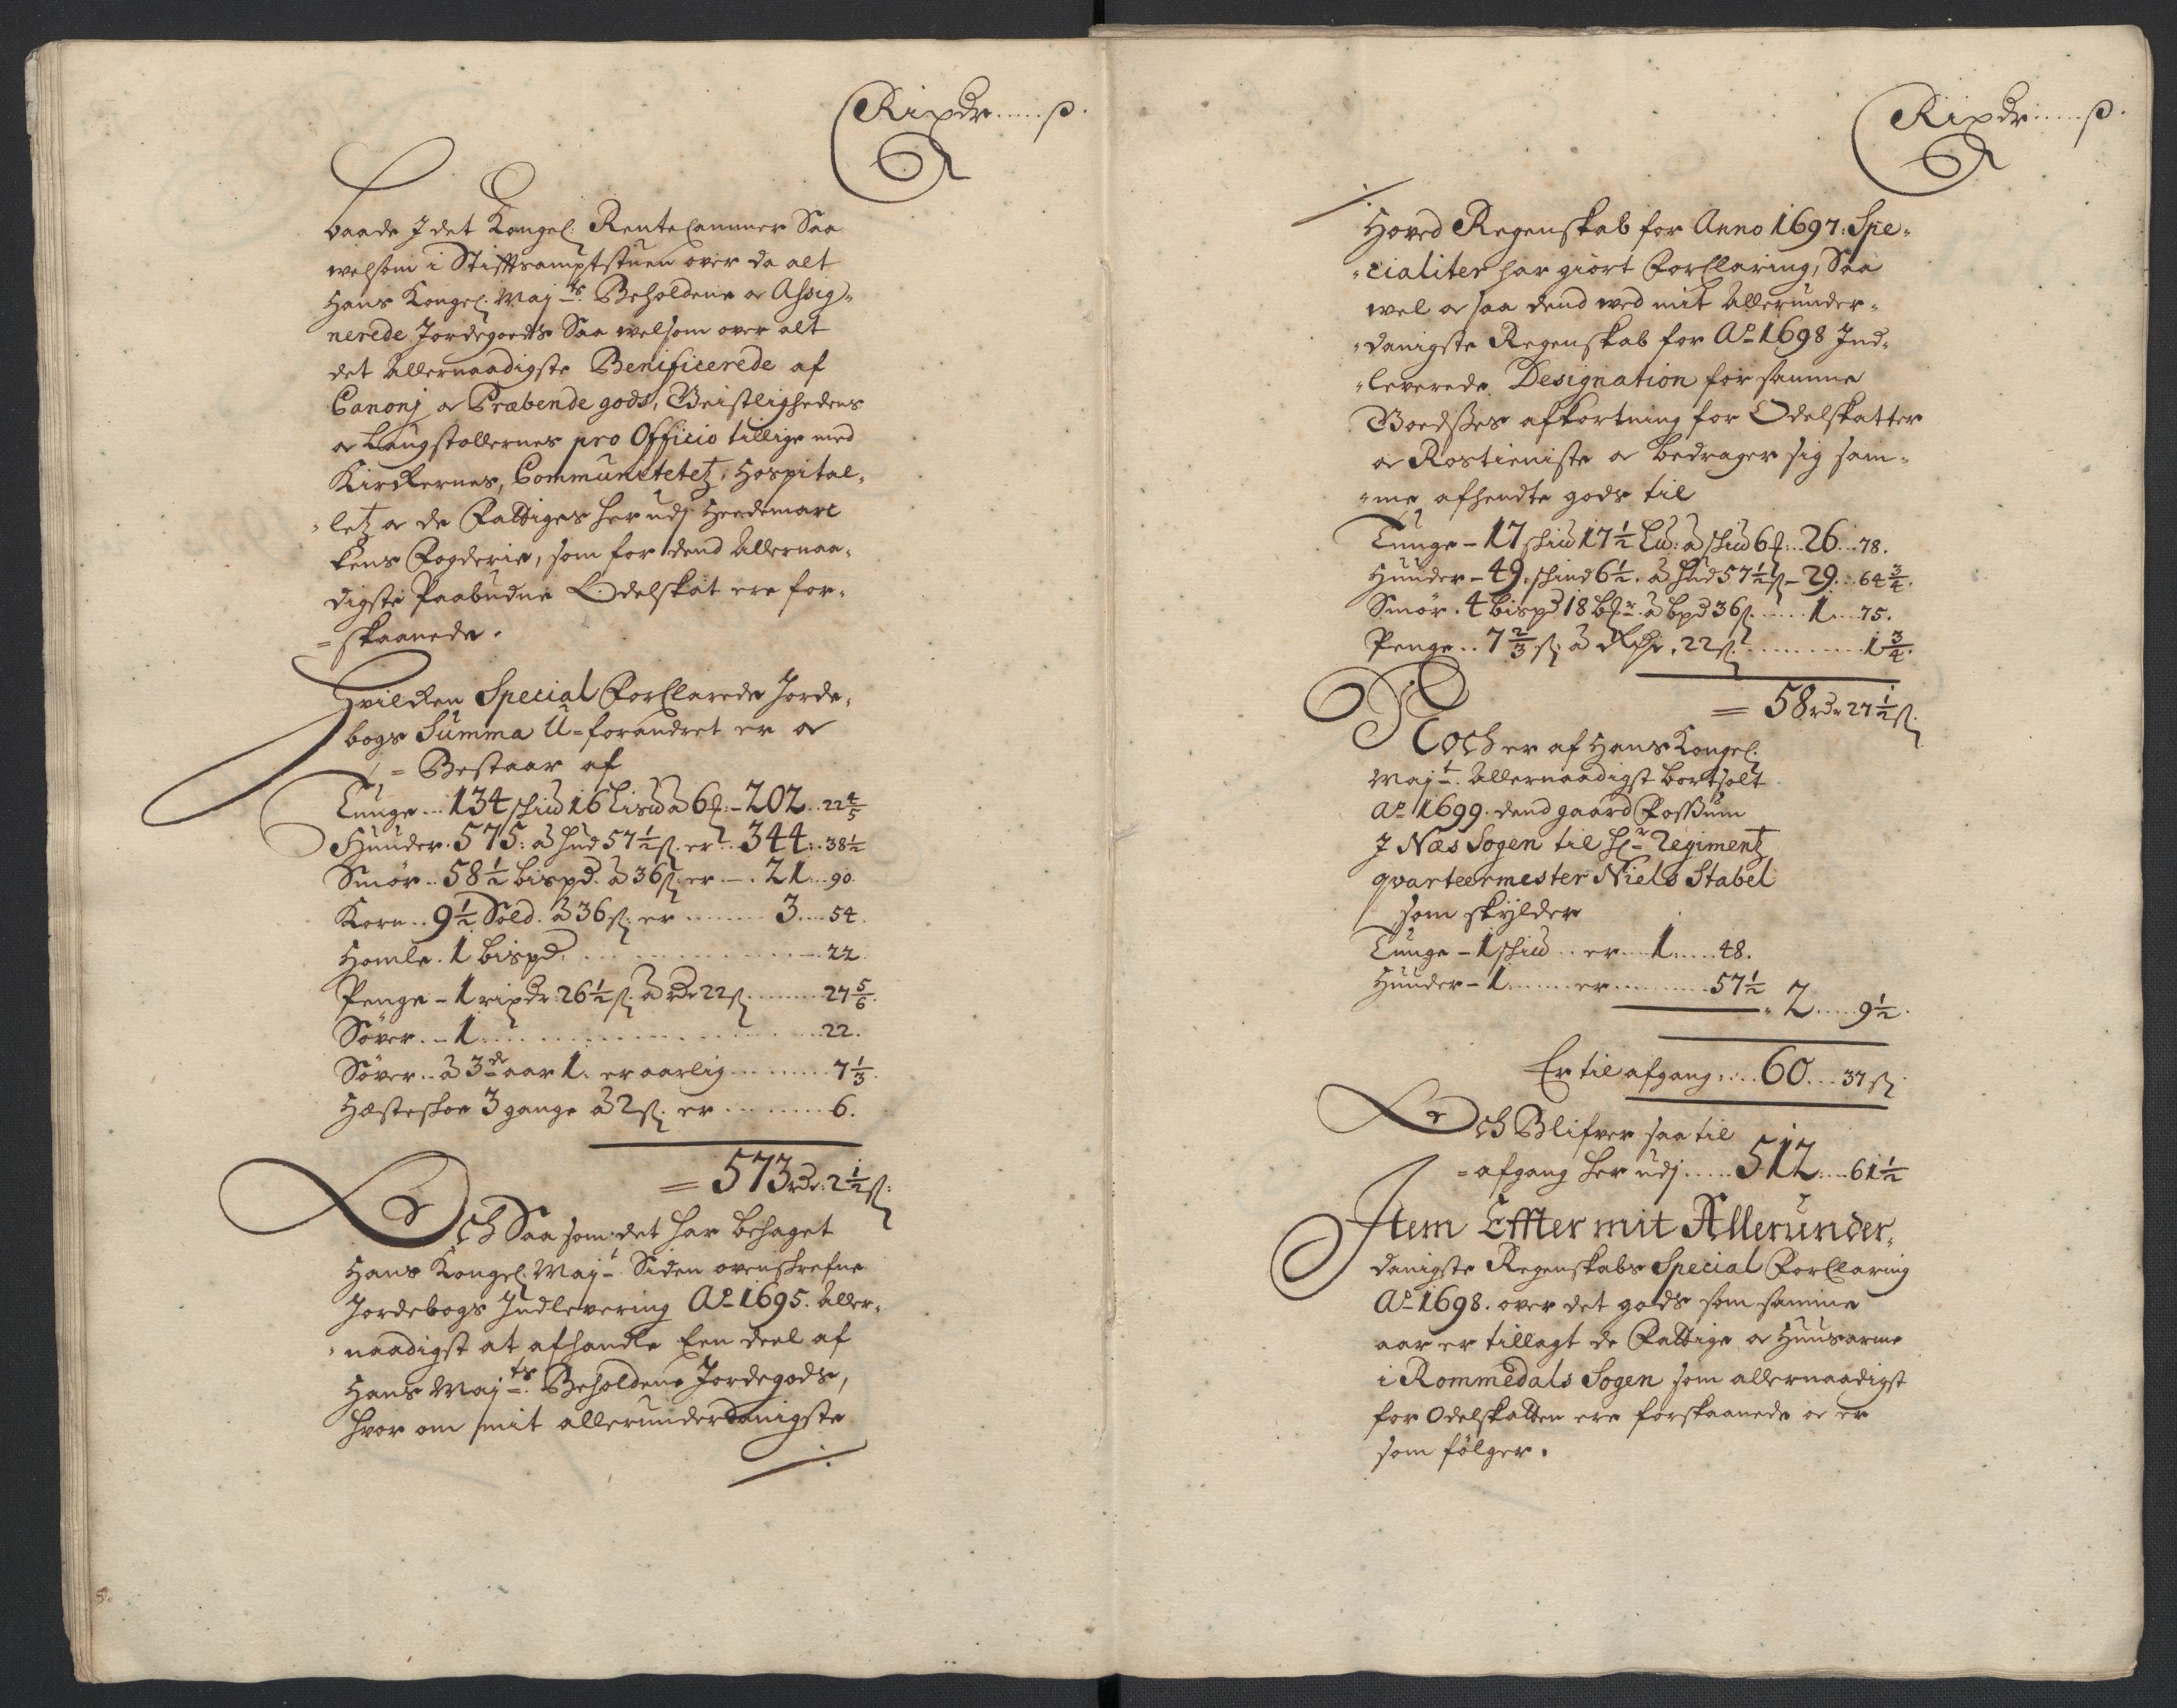 Rixdr.....ß.
baade J det Kongel: RenteCammer Saa
welsom i Stifftsamptstuen over da alt
Hans Kongel: Majts. Beholdene oc Assig-
nerede Jordegoeds Saa welsom over alt
det Allernaadigste Benificerede af
Canonj oc Præbende gods, Geistlighedens
oc Laugstollernes pro Officio tillige med
Kirckernes, Communitetetz, Hospital-
letz oc de Fattiges her udj Heedemarc
kens Fogderie, som for dend Allernaa-
digste Paabudne Odelskat ere for-
=skaanede.
Hvilcken Special Forclarede Jorde-
bogs Summa U-forandret er oc
= Bestaar af
Tunge... 134 skind 16 Lispd à 6 f:- 202.. 22 4/5
Huuder. 575: à hud 57 1/2 ß. er... 344:. 38 1/2
Smör.. 58 1/2 bispd. à 36 ß. er - . 21... 90.
Korn.. 9 1/2 Sold. à 36 ß: er ........ 3.... 54.
Homle. 1 bispd. ................ 22.
Penge - 1 rixdr: 26 1/2 ß. à rdr 22 ß ........ 27 5/6.
Söver.. - 1 .................... 22.
Söver.. à 3de aar 1. er aarlig ........ 7 1/3.
Hæsteskoe 3 gange à 2 ß. er ........ 6.
= 573 rdr: 2 1/2 ß:
Och Saa som det har behaget
Hans Kongel: Majt. Siden ovenskrefne
Jordebogs Indlevering Ao 1695. Aller-
naadigst at afhandle Een deel af
Hans Majts. Beholdene Jordegods,
hvor om mit allerunderdanigste
Rixdr.....ß.
Hoved Regenskab for Anno 1697: Spe-
-cialiter har giort Forclaring, Saa
wel oc saa dend wed mit Allerunder-
-danigste Regenskab for Ao 1698 Ind-
-leverede Designation for samme
Goedsses afkortning for Odelskatter
oc Rostieniste oc bedrager sig sam-
-me afhendte gods til
Tunge - 17 skind 17 1/2 Lid: à skind 6 f:.. 26... 78.
Huuder - 49. skind 6 1/2. à hud 57 1/2 ß - 29... 64 3/4.
Smör. 4 bispd 18 à bpd 36 ß ...... 1.... 75.
Penge.. 7 2/3 ß: à rdr. 22 ß ............ 1 3/4.
= 58 rdr 27 1/2 ß.
Noch er af Hans Kongel.
Majt. Allernaadigst bortsolt
Ao 1699. dend gaard Fossum
J Næs Sogen til Hr Regimentz
qvarteermester Niels Stabel
som skylder
Tunge - 1 skind .. er.... 1..... 48.
Huuder - 1 ....... er ......... 57 1/2
- 2..... 9 1/2.
Er til afgang:... 60... 37 ß.
Och Blifver saa til
=afgang her udj ..... 512.... 61 1/2
Item Effter mit Allerunder-
danigste Regenskabs Special Forclaring
Ao 1698. over det gods som samme
aar er tillagt de Fattige oc Huusarme
i Rommedals Sogen som allernaadigst
for Odelskatten ere forskaanede oc er
som fölger.